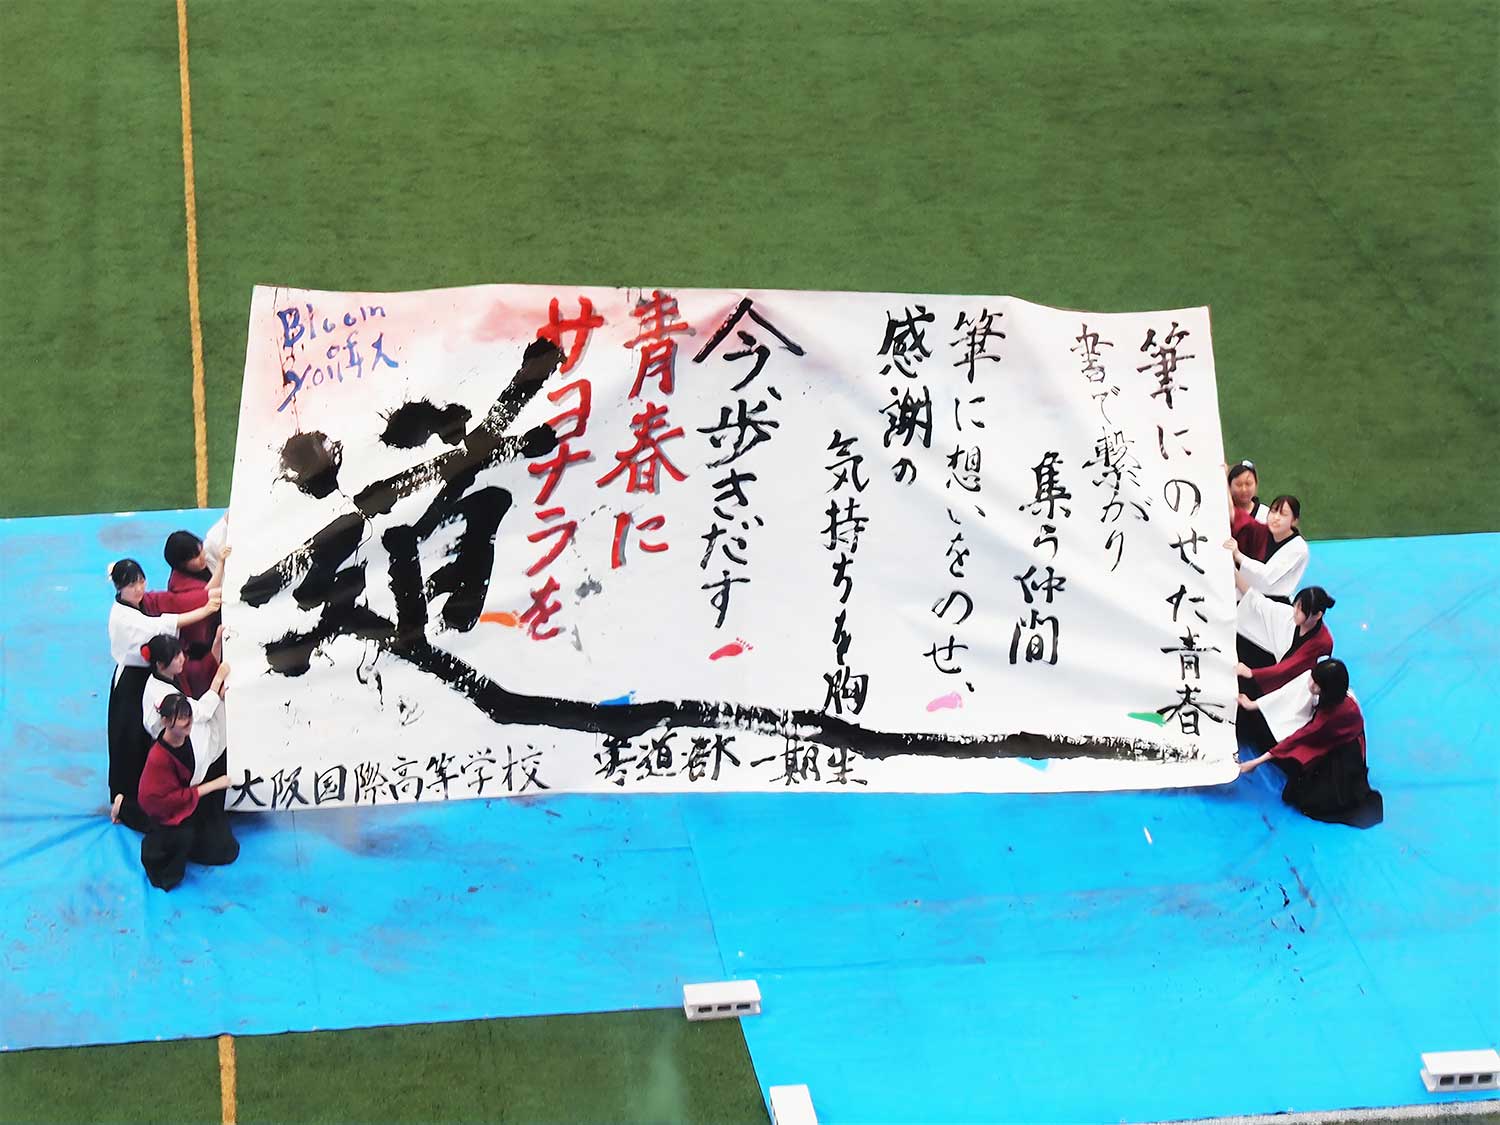 筆にのせた青春
書で繋がり
集う仲間
筆に想いをのせ、
感謝の
気持ちを胸に
今、歩きだす
青春に
サヨナラを
道
Bloom
of
大阪国際高等学校
書道部一期生